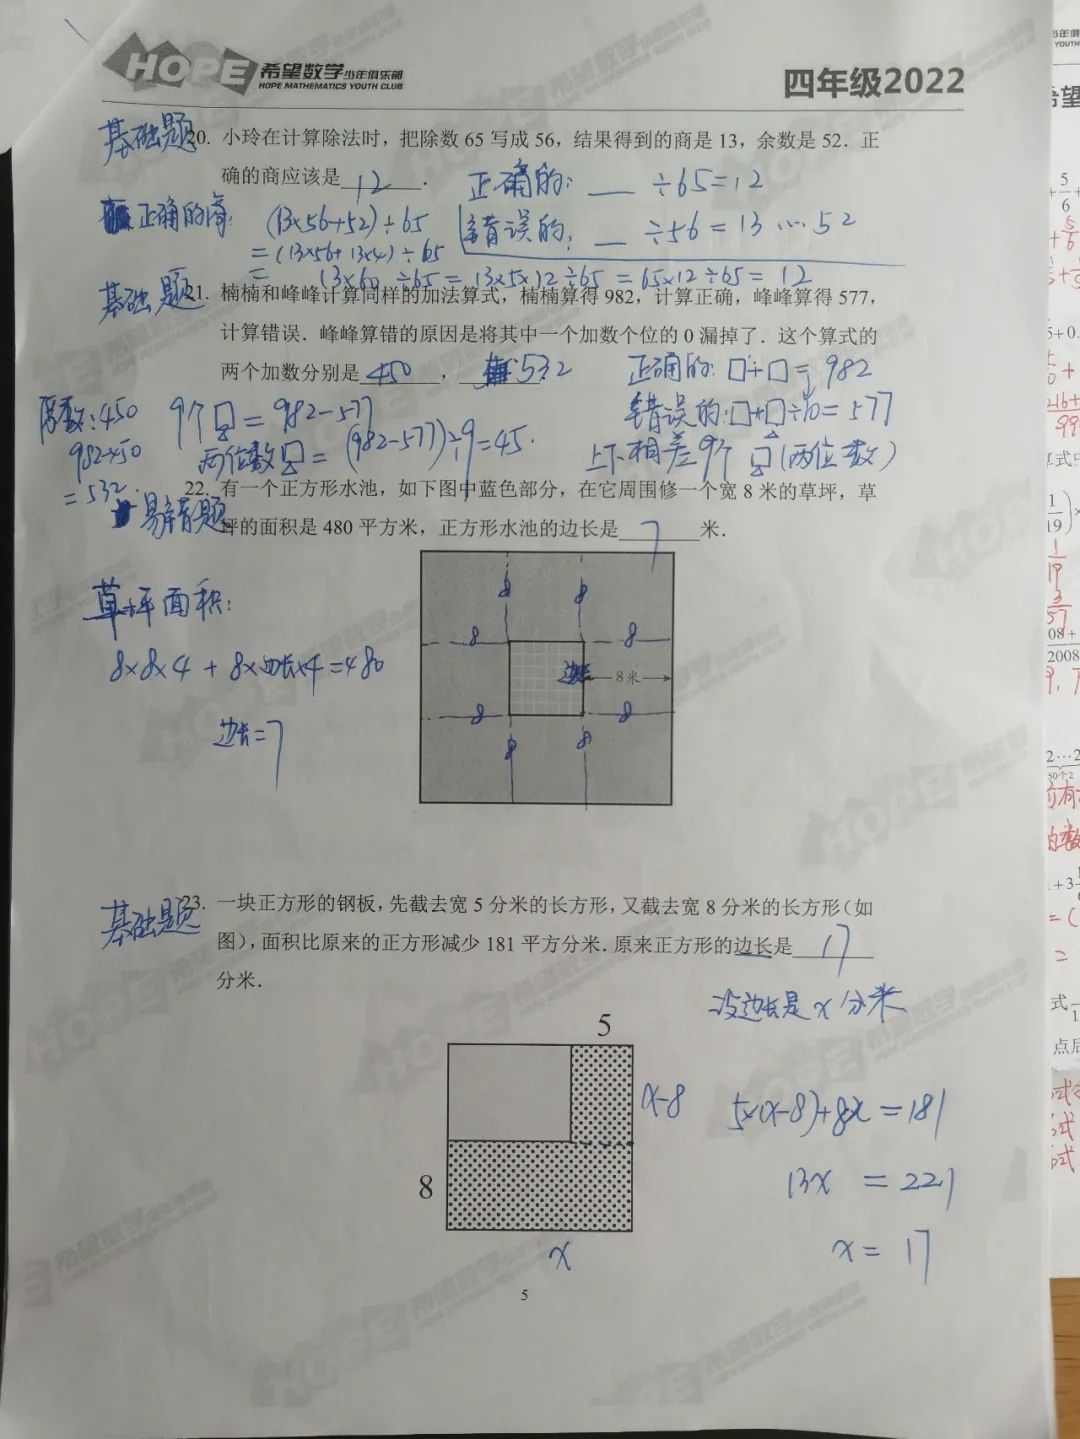 HOPE 希望数学少年俱乐部
HOPE MATHEMATICS YOUTH CLUB
四年级2022
基础题
20. 小玲在计算除法时，把除数 65 写成 56，结果得到的商是 13，余数是 52．正
确的商应该是 12 ．
正确的: __ ÷65=12
正确的商:
(13×56+52)÷65
错误的: __ ÷56=13…52
=(13×56+13×4)÷65
= 13×60÷65=13×5×12÷65=65×12÷65=12
基础题
21. 楠楠和峰峰计算同样的加法算式，楠楠算得 982，计算正确，峰峰算得 577，
计算错误．峰峰算错的原因是将其中一个加数个位的 0 漏掉了．这个算式的
两个加数分别是 450 ， 532
正确的: □+□=982
错误的:□+□÷10=577
上下相差9个□(两位数)
原数:450
982-450
=532.
9个□=982-577
两位数□=(982-577)÷9=45.
易错题
22. 有一个正方形水池，如下图中蓝色部分，在它周围修一个宽 8 米的草坪，草
坪的面积是 480 平方米，正方形水池的边长是 7 米．
草坪面积:
8×8×4+8×边长×4=480
边长=7
8 8
8 8
边长 8米
8 8
8 8
基础题
23. 一块正方形的钢板，先截去宽 5 分米的长方形，又截去宽 8 分米的长方形（如
图），面积比原来的正方形减少 181 平方分米．原来正方形的边长是 17
分米．
设边长是x分米
5
x-8
8
x
5×(x-8)+8x=181
13x =221
x=17
5